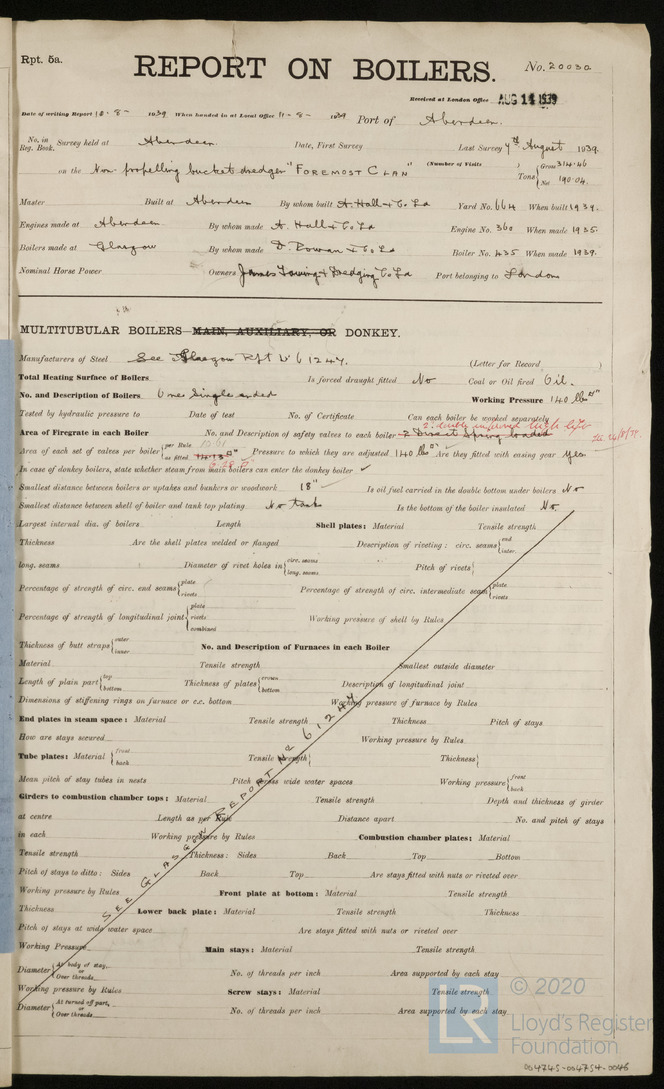 Rpt. 5a.
REPORT ON BOILERS.
No. 20030
Received at London Office AUG 14 1939
Date of writing Report 12-8- 1939 When handed in at Local Office 11-8- 1939 Port of Aberdeen.
No. in Reg. Book. Survey held at Aberdeen. Date, First Survey Last Survey 4th August 1939
on the Non-propelling bucket dredger "FOREMOST CLAN" (Number of Visits ) Tons Gross 314.46 Net 190.04.
Master Built at Aberdeen By whom built A. Hall & Co Ld Yard No. 664 When built 1939.
Engines made at Aberdeen By whom made A. Hall & Co Ld Engine No. 360 When made 1935.
Boilers made at Glasgow By whom made D. Rowan & Co Ld Boiler No. 435 When made 1939.
Nominal Horse Power Owners James Towing & Dredging Co Ld Port belonging to London
MULTITUBULAR BOILERS MAIN, AUXILIARY, OR DONKEY.
Manufacturers of Steel See Glasgow Rpt No 61247. (Letter for Record )
Total Heating Surface of Boilers Is forced draught fitted No Coal or Oil fired Oil.
No. and Description of Boilers One single ended Working Pressure 140 lbs
Tested by hydraulic pressure to Date of test No. of Certificate Can each boiler be worked separately
2. double improved high lift
Area of Firegrate in each Boiler No. and Description of safety valves to each boiler 2 Direct Spring loaded
Area of each set of valves per boiler per Rule as fitted Pressure to which they are adjusted 140 lbs Are they fitted with easing gear yes
In case of donkey boilers, state whether steam from main boilers can enter the donkey boiler ✓
Smallest distance between boilers or uptakes and bunkers or woodwork 18" Is oil fuel carried in the double bottom under boilers No
Smallest distance between shell of boiler and tank top plating No tank Is the bottom of the boiler insulated No.
Largest internal dia. of boilers Length Shell plates: Material Tensile strength
Thickness Are the shell plates welded or flanged Description of riveting: circ. seams end inter.
long. seams Diameter of rivet holes in circ. seams long. seams Pitch of rivets
Percentage of strength of circ. end seams plate rivets Percentage of strength of circ. intermediate seam plate rivets
Percentage of strength of longitudinal joint plate rivets combined Working pressure of shell by Rules
Thickness of butt straps outer inner No. and Description of Furnaces in each Boiler
Material Tensile strength Smallest outside diameter
Length of plain part top bottom Thickness of plates crown bottom Description of longitudinal joint
Dimensions of stiffening rings on furnace or c.c. bottom Working pressure of furnace by Rules
End plates in steam space: Material Tensile strength Thickness Pitch of stays
How are stays secured Working pressure by Rules
Tube plates: Material front back Tensile strength Thickness
Mean pitch of stay tubes in nests Pitch across wide water spaces Working pressure front back
Girders to combustion chamber tops: Material Tensile strength Depth and thickness of girder
at centre Length as per Rule Distance apart No. and pitch of stays
in each Working pressure by Rules Combustion chamber plates: Material
Tensile strength Thickness: Sides Back Top Bottom
Pitch of stays to ditto: Sides Back Top Are stays fitted with nuts or riveted over
Working pressure by Rules Front plate at bottom: Material Tensile strength
Thickness Lower back plate: Material Tensile strength Thickness
Pitch of stays at wide water space Are stays fitted with nuts or riveted over
Working Pressure Main stays: Material Tensile strength
Diameter At body of stay, or Over threads No. of threads per inch Area supported by each stay
Working pressure by Rules Screw stays: Material Tensile strength
Diameter At turned off part, or Over threads No. of threads per inch Area supported by each stay
SEE GLASGOW REPORT No 61247
LR
© 2020
Lloyd's Register
Foundation
004745-004754-0046